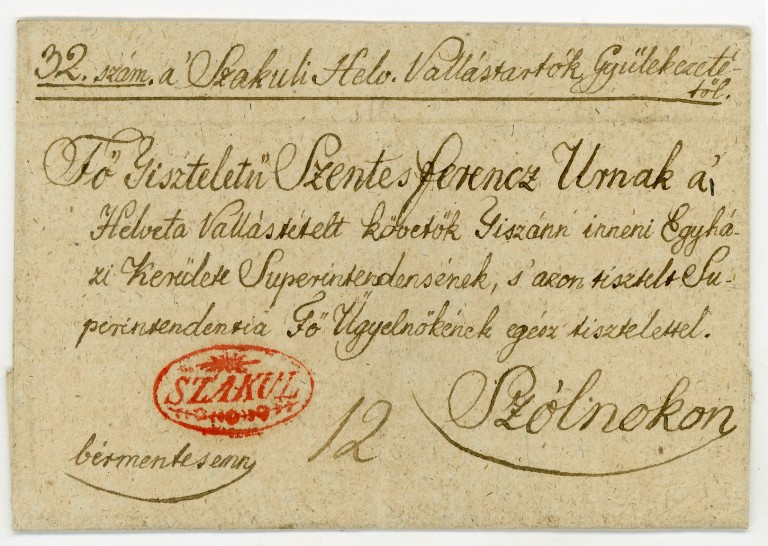 32. szám. a' Szakuli Helv. Vallástartók Gyülekezeté-
től.
Fő Tiszteletű Szentes Ferencz Urnak a'
Helveta Vallástételt követők Tiszánn innéni Egyhá-
zi Kerülete Superintendensének, s' azon tisztelt Su-
perintendentia Fő Ügyelnőkének egész tisztelettel.
SZAKUL
Szólnokon
bérmentesenn
12